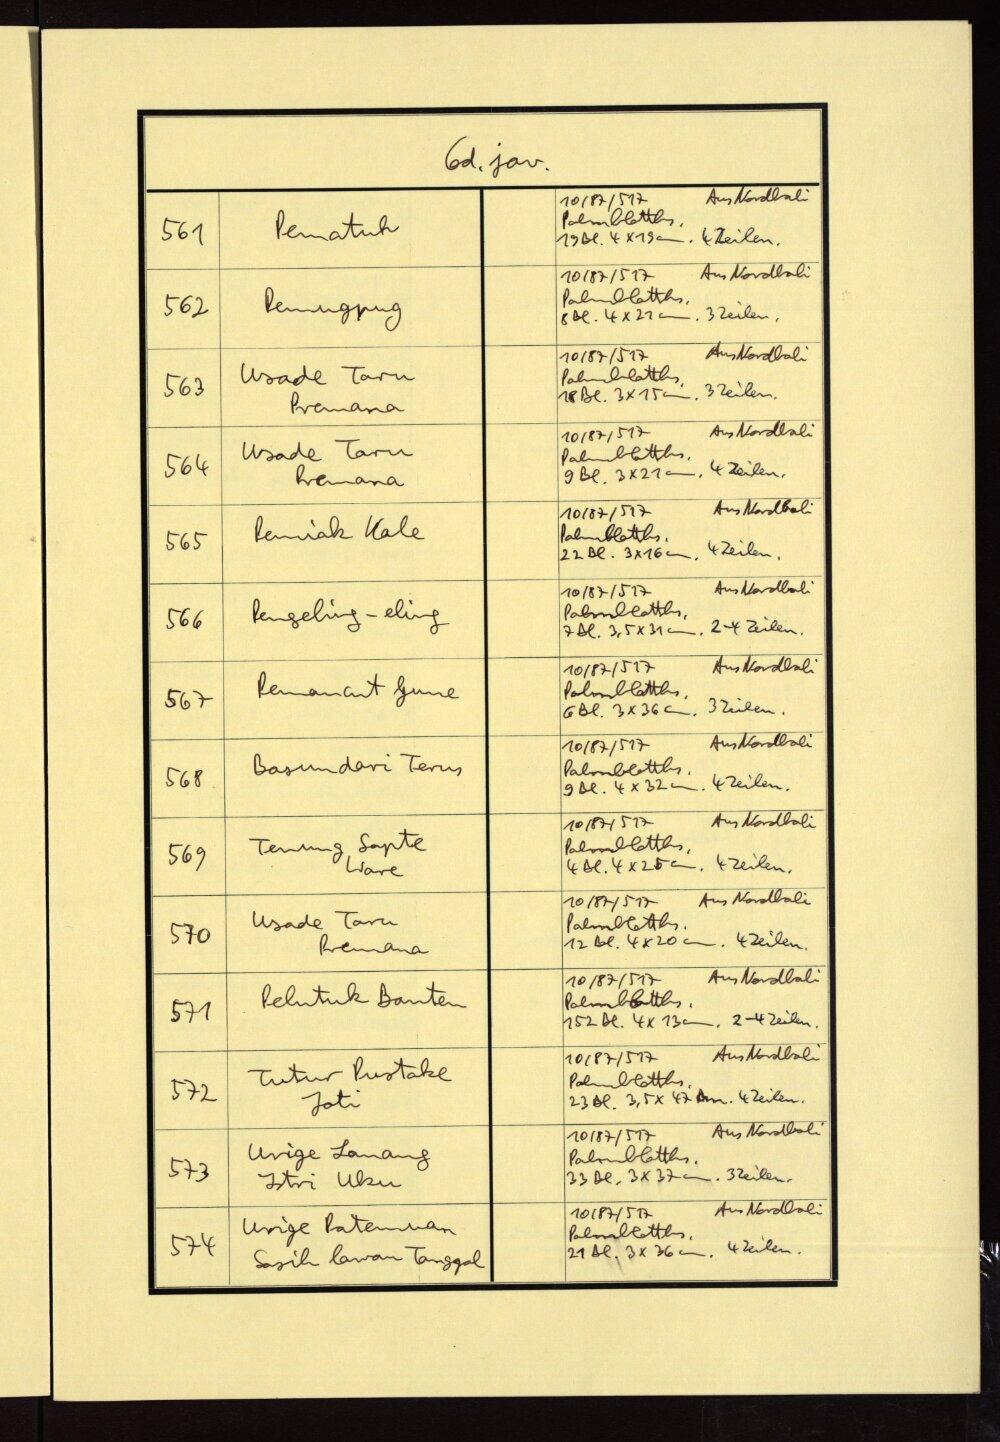 Cod. jav.
561
Pematuh
10/87/517 Aus Nordbali
Palmblatths.
19 Bl. 4 x 19 cm. 4 Zeilen.
562
Pemugpug
10/87/517 Aus Nordbali
Palmblatths.
8 Bl. 4 x 21 cm. 3 Zeilen.
563
Usade Taru
Premana
10/87/517 Aus Nordbali
Palmblatths.
18 Bl. 3 x 15 cm. 3 Zeilen.
564
Usade Taru
Premana
10/87/517 Aus Nordbali
Palmblatths.
9 Bl. 3 x 21 cm. 4 Zeilen.
565
Pemiak Kale
10/87/517 Aus Nordbali
Palmblatths.
22 Bl. 3 x 16 cm. 4 Zeilen.
566
Pengeling-eling
10/87/517 Aus Nordbali
Palmblatths.
7 Bl. 3,5 x 31 cm. 2-4 Zeilen.
567
Pemancut Gune
10/87/517 Aus Nordbali
Palmblatths.
6 Bl. 3 x 36 cm. 3 Zeilen.
568
Basundari Terus
10/87/517 Aus Nordbali
Palmblatths.
9 Bl. 4 x 32 cm. 4 Zeilen.
569
Tenung Sapte
Ware
10/87/517 Aus Nordbali
Palmblatths.
4 Bl. 4 x 25 cm. 4 Zeilen.
570
Usade Taru
Premana
10/87/517 Aus Nordbali
Palmblatths.
12 Bl. 4 x 20 cm. 4 Zeilen.
571
Pelutuk Banten
10/87/517 Aus Nordbali
Palmblatths.
152 Bl. 4 x 13 cm. 2-4 Zeilen.
572
Tutur Pustake
Jati
10/87/517 Aus Nordbali
Palmblatths.
23 Bl. 3,5 x 47 cm. 4 Zeilen.
573
Urige Lanang
Istri Uku
10/87/517 Aus Nordbali
Palmblatths.
33 Bl. 3 x 37 cm. 3 Zeilen.
574
Urige Patemuan
Sasih lawan Tanggal
10/87/517 Aus Nordbali
Palmblatths.
21 Bl. 3 x 36 cm. 4 Zeilen.